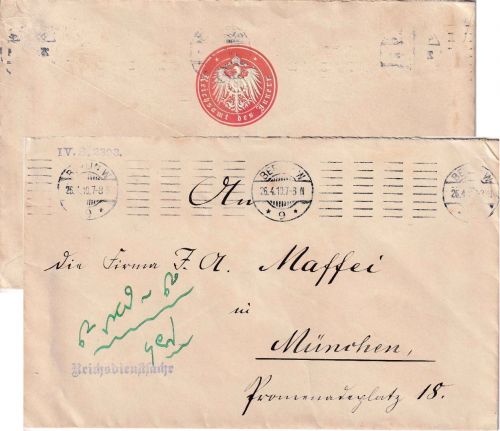 Reichsamt des Innern
IV. B. 2303.
BERLIN.W
26.4.10.7-8 N
* 9 *
BERLIN.W
26.4.10.7-8 N
* 9 *
26.4
An
die Firma J. A. Maffei
in
München,
Promenadeplatz 18.
Reichsdienstsache